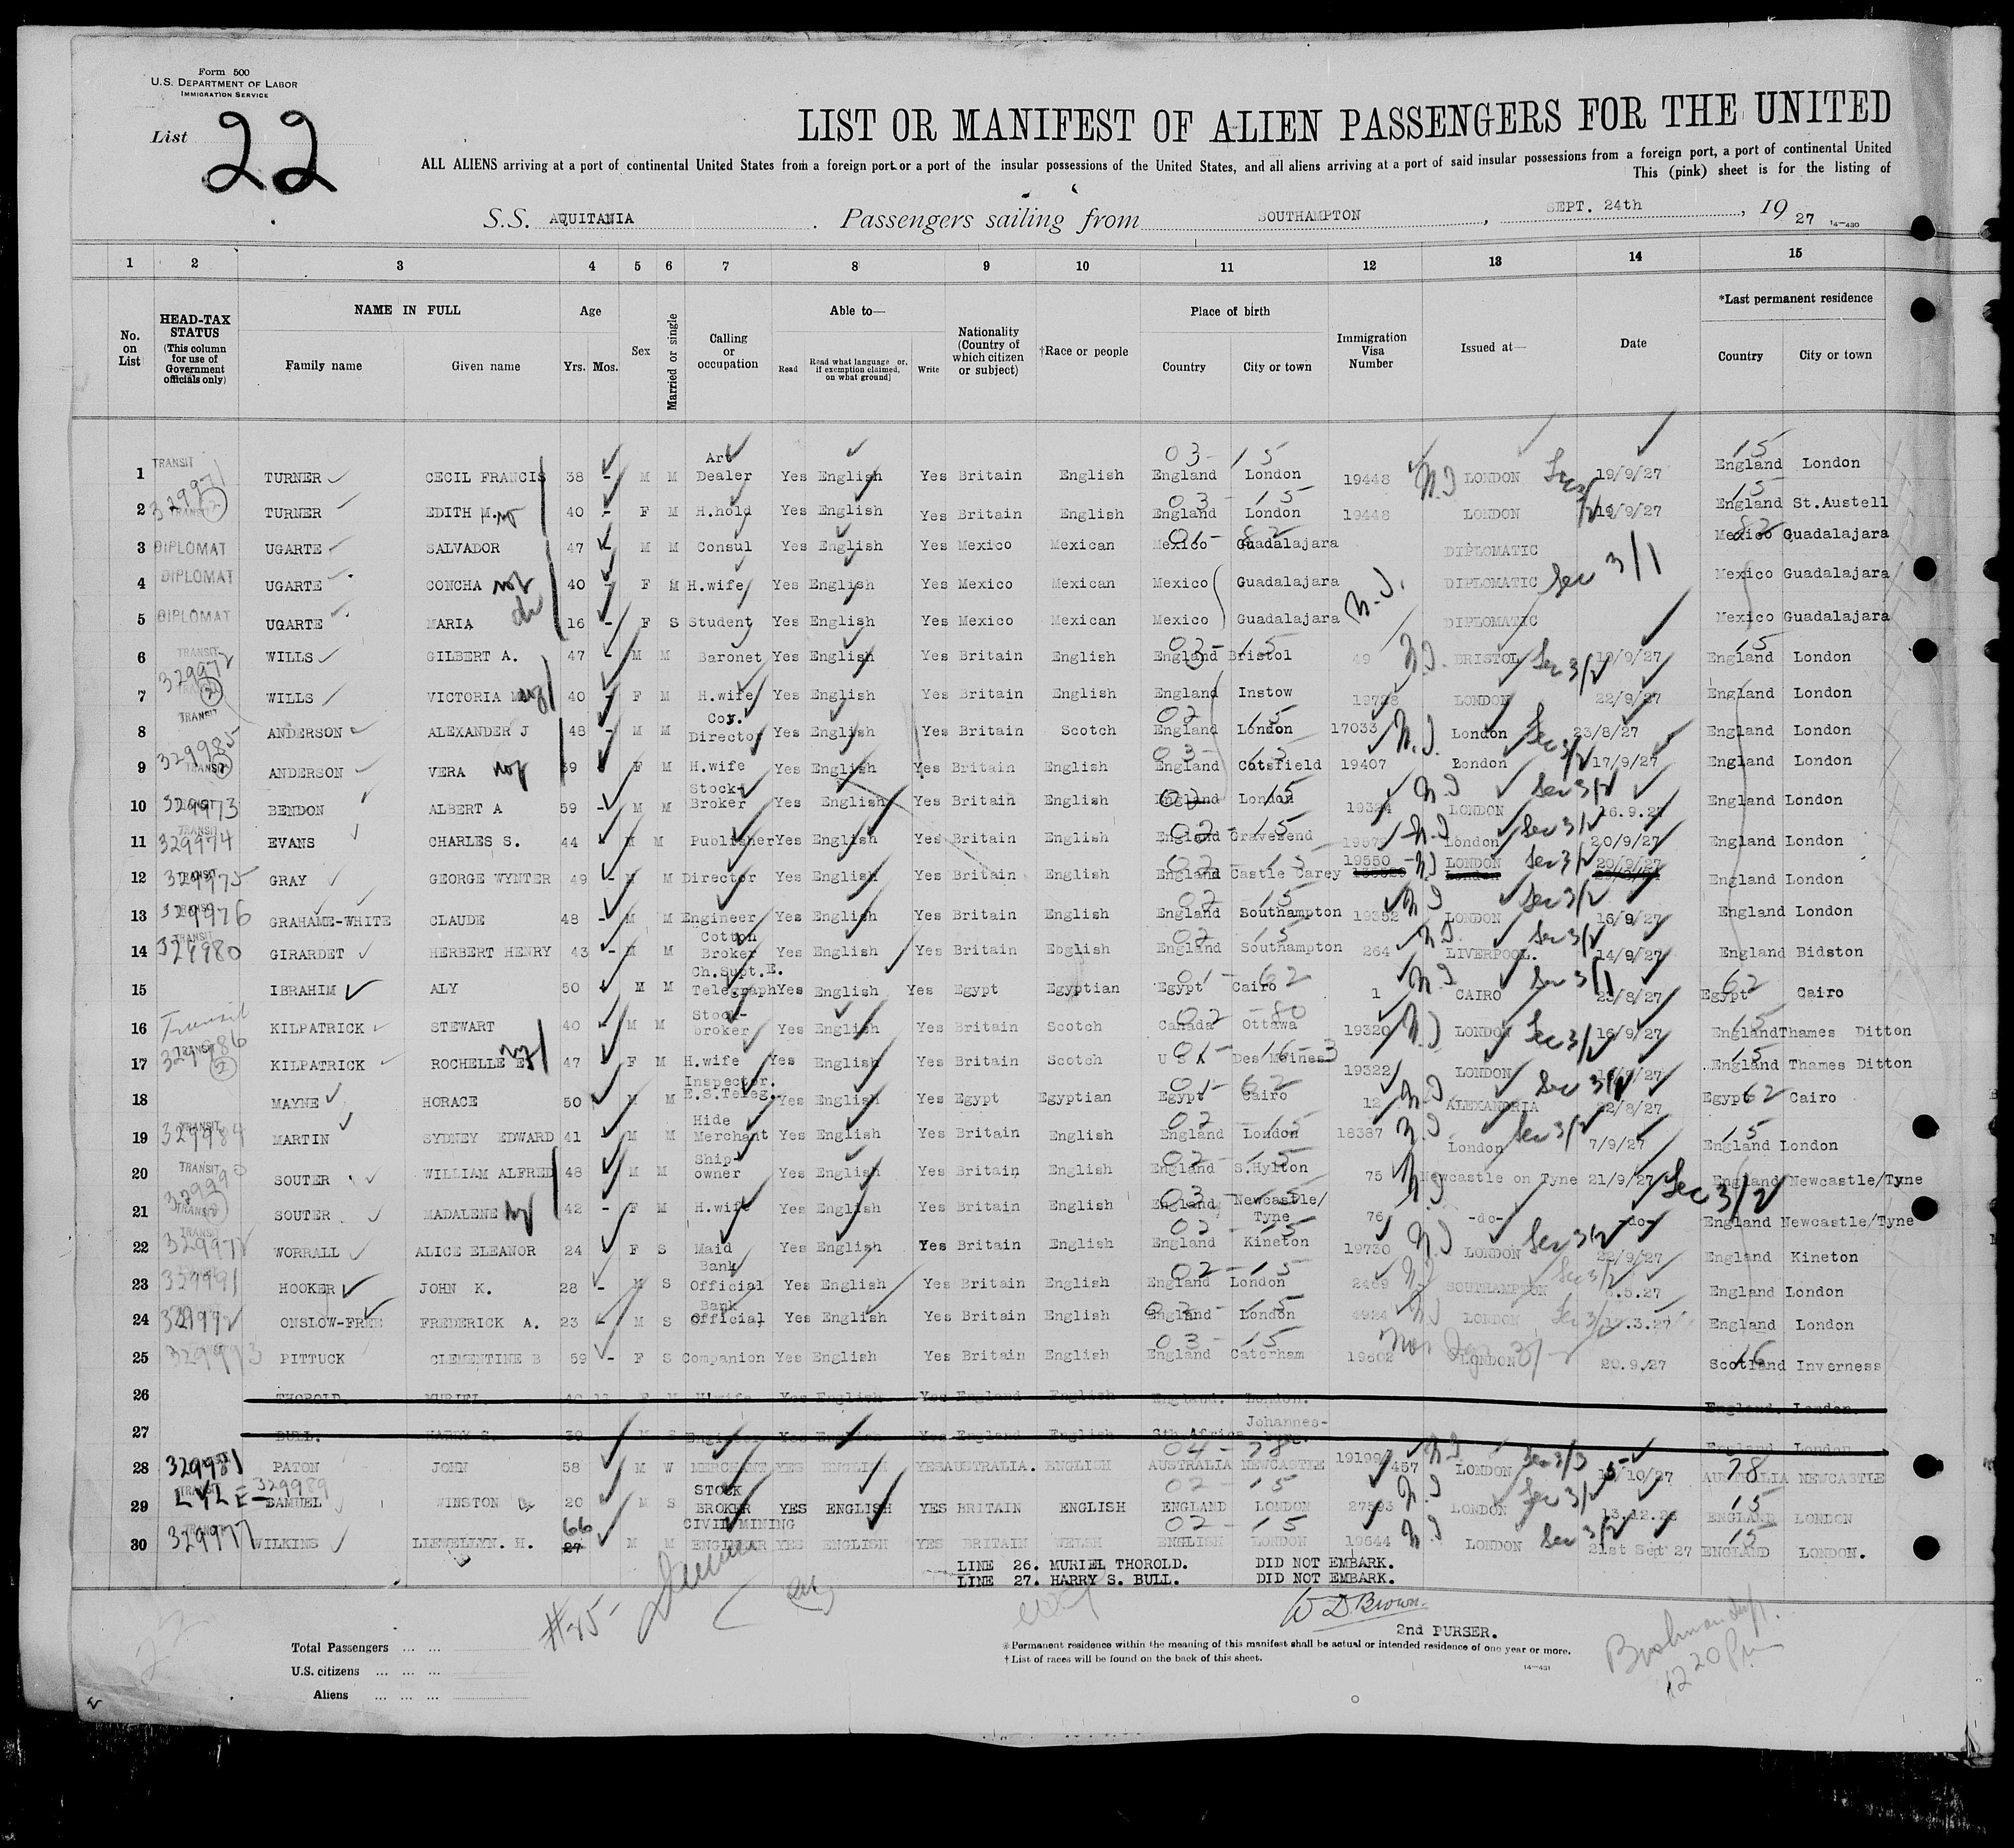 Form 500
U.S. DEPARTMENT OF LABOR
IMMIGRATION SERVICE
List 22
LIST OR MANIFEST OF ALIEN PASSENGERS FOR THE UNITED
ALL ALIENS arriving at a port of continental United States from a foreign port or a port of the insular possessions of the United States, and all aliens arriving at a port of said insular possessions from a foreign port, a port of continental United
This (pink) sheet is for the listing of
S.S. AQUITANIA . Passengers sailing from SOUTHAMPTON , SEPT. 24th , 19 27 14-430
1 2 3 4 5 6 7 8 9 10 11 12 13 14 15
No. on List
HEAD-TAX STATUS (This column for use of Government officials only)
NAME IN FULL
Family name Given name
Age Yrs. Mos.
Sex
Married or single
Calling or occupation
Able to—
Read Read what language or, if exemption claimed, on what ground] Write
Nationality (Country of which citizen or subject)
†Race or people
Place of birth
Country City or town
Immigration Visa Number
Issued at—
Date
*Last permanent residence
Country City or town
1 TRANSIT 329971 TURNER CECIL FRANCIS 38 - M M Art Dealer Yes English Yes Britain English England London 03-15 19448 N.I LONDON 19/9/27 England London 15
2 TRANSIT 2 TURNER EDITH M. 40 - F M H.hold Yes English Yes Britain English England London 03-15 19448 LONDON Sec 3/2 19/9/27 England St.Austell 15
3 DIPLOMAT UGARTE SALVADOR 47 - M M Consul Yes English Yes Mexico Mexican Mexico Guadalajara 01-82 DIPLOMATIC Mexico Guadalajara 82
4 DIPLOMAT UGARTE CONCHA 40 - F M H.wife Yes English Yes Mexico Mexican Mexico Guadalajara DIPLOMATIC Sec 3/1 Mexico Guadalajara
5 DIPLOMAT UGARTE MARIA 16 - F S Student Yes English Yes Mexico Mexican Mexico Guadalajara N.I. DIPLOMATIC Mexico Guadalajara
6 TRANSIT 329972 WILLS GILBERT A. 47 - M M Baronet Yes English Yes Britain English England Bristol 03-15 49 N.I. BRISTOL Sec 3/2 19/9/27 England London 15
7 2 WILLS VICTORIA 40 - F M H.wife Yes English Yes Britain English England Instow 19728 LONDON 22/9/27 England London
8 TRANSIT ANDERSON ALEXANDER J 48 - M M Coy. Director Yes English Yes Britain Scotch England London 02 15 17033 N.I. London Sec 3/2 23/8/27 England London
9 329985 TRANSIT 2 ANDERSON VERA 39 F M H.wife Yes English Yes Britain English England Catsfield 03-15 19407 London 17/9/27 England London
10 329973 BENDON ALBERT A 59 - M M Stock- Broker Yes English Yes Britain English England London 02 15 19324 N.I LONDON Sec 3/2 16.9.27 England London
11 TRANSIT 329974 EVANS CHARLES S. 44 M M Publisher Yes English Yes Britain English England Gravesend 02-15 N.I London Sec 3/2 20/9/27 England London
12 329975 GRAY GEORGE WYNTER 49 - M M Director Yes English Yes Britain English England Castle Carey 02-15 19550 N.I LONDON Sec 3/2 20/9/27 England London
13 329976 GRAHAME-WHITE CLAUDE 48 - M M Engineer Yes English Yes Britain English England Southampton 02-15 19352 N.I LONDON Sec 3/2 16/9/27 England London
14 TRANSIT 329980 GIRARDET HERBERT HENRY 43 - M M Cotton Broker Yes English Yes Britain Ebglish England Southampton 02 15 264 N.I. LIVERPOOL. Sec 3/2 14/9/27 England Bidston
15 IBRAHIM ALY 50 M M Ch.Supt.E. Telegraph Yes English Yes Egypt Egyptian Egypt Cairo 01-62 1 N.I CAIRO Sec 3/1 /8/27 Egypt Cairo 62
16 Transit KILPATRICK STEWART 40 - M M Stock- broker Yes English Yes Britain Scotch Canada Ottawa 02-80 19320 N.I LONDON Sec 3/2 16/9/27 England Thames Ditton 15
17 329986 TRANSIT 2 KILPATRICK ROCHELLE E. 47 F M H.wife Yes English Yes Britain Scotch U S A Des Moines 01-16-3 19322 LONDON England Thames Ditton 15
18 MAYNE HORACE 50 M M Inspector. E.S.Teleg. Yes English Yes Egypt Egyptian Egypt Cairo 01-62 12 N.I ALEXANDRIA Sec 3/2 22/8/27 Egypt Cairo 62
19 TRANSIT 329984 MARTIN SYDNEY EDWARD 41 - M M Hide Merchant Yes English Yes Britain English England London 02-15 18387 N.I London Sec 3/2 7/9/27 England London 15
20 TRANSIT 329990 SOUTER WILLIAM ALFRED 48 M M Ship- owner Yes English Yes Britain English England S.Hylton 02-15 75 N.I Newcastle on Tyne 21/9/27 Sec 3/2 England Newcastle/Tyne
21 TRANSIT 2 SOUTER MADALENE 42 - F M H.wife Yes English Yes Britain English England Newcastle/ Tyne 03-15 76 -do- -do- England Newcastle/Tyne
22 TRANSIT WORRALL ALICE ELEANOR 24 F S Maid Yes English Yes Britain English England Kineton 02-15 19730 N.I LONDON Sec 3/2 22/9/27 England Kineton
23 329991 HOOKER JOHN K. 28 - M S Bank Official Yes English Yes Britain English England London 02-15 N.I SOUTHAMPTON Sec 3/2 .5.27 England London
24 329992 ONSLOW-FREE FREDERICK A. 23 M S Bank Official Yes English Yes Britain English England London 02-15 4924 N.I LONDON Sec 3/2 .3.27 England London
25 329993 PITTUCK CLEMENTINE B 59 - F S Companion Yes English Yes Britain English England Caterham 03-15 19602 LONDON 20.9.27 Scotland Inverness 16
26 THOROLD. MURIEL. 40 11 F M H'wife Yes English Yes England English England. London. England. London.
27 BULL. HARRY S. 30 M S Engineer Yes English Yes England English Sth.Africa Johannes- burg. England London
28 329981 PATON JOHN 58 M W MERCHANT YES ENGLISH YES AUSTRALIA. ENGLISH AUSTRALIA NEWCASTLE 04-78 19199 457 N.I LONDON Sec 3/3 /10/27 AUSTRALIA NEWCASTLE 78
29 329989 SAMUEL WINSTON 20 M S STOCK BROKER YES ENGLISH YES BRITAIN ENGLISH ENGLAND LONDON 02-15 27893 N.I LONDON Sec 3/2 13.12.26 ENGLAND LONDON 15
30 TRANSIT 329977 WILKINS LLEWELLYN. H. 66 27 M M CIVIL MINING ENGINEAR YES ENGLISH YES BRITAIN WELSH ENGLISH LONDON 02-15 19644 N.I LONDON Sec 3/2 21st Sept 27 ENGLAND LONDON. 15
LINE 26. MURIEL THOROLD. DID NOT EMBARK.
LINE 27. HARRY S. BULL. DID NOT EMBARK.
W D. Brown.
2nd PURSER.
22
Total Passengers ... ...
U.S. citizens ... ... ...
Aliens ... ... ...
*Permanent residence within the meaning of this manifest shall be actual or intended residence of one year or more.
†List of races will be found on the back of this sheet.
14-431
1220 Pm